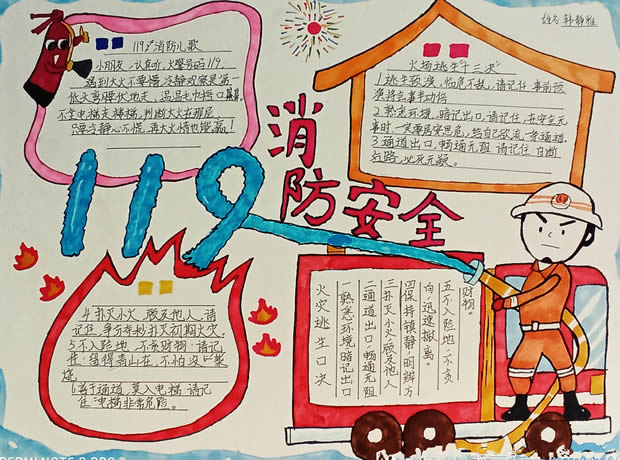 姓名:韩静雅
119消防儿歌
小朋友,认真听,火警号码119.
遇到大火不要慌,冷静观察是第一
低头弯腰伏地走,湿湿毛巾捂口鼻
不坐电梯走楼梯,判断大火在哪层
只要冷静心不慌,再大火情也能赢!
火场逃生十三诀
1逃生预演,临危不乱,请记住:事前预
演将会事半功倍
2.熟悉环境,暗记出口,请记住:在安全无
事时,一定要居安思危,给自己留一条通道.
3.通道出口,畅通无阻.请记住:自断
后路,必死无疑。
消防安全
119
4.扑灭小火,惠及他人.请
记住:争分夺秒扑灭初期火灾.
5.不入险地,不贪财物.请记
住:留得青山在,不怕没柴
烧
住:电梯非常危险。
火灾逃生口诀
一熟悉环境暗记出口
二通道出口,畅通无阻
三扑灭小火,惠及他人
四保持镇静,明辨方
向,迅速撤离。
五不入险地,不贪
财物。